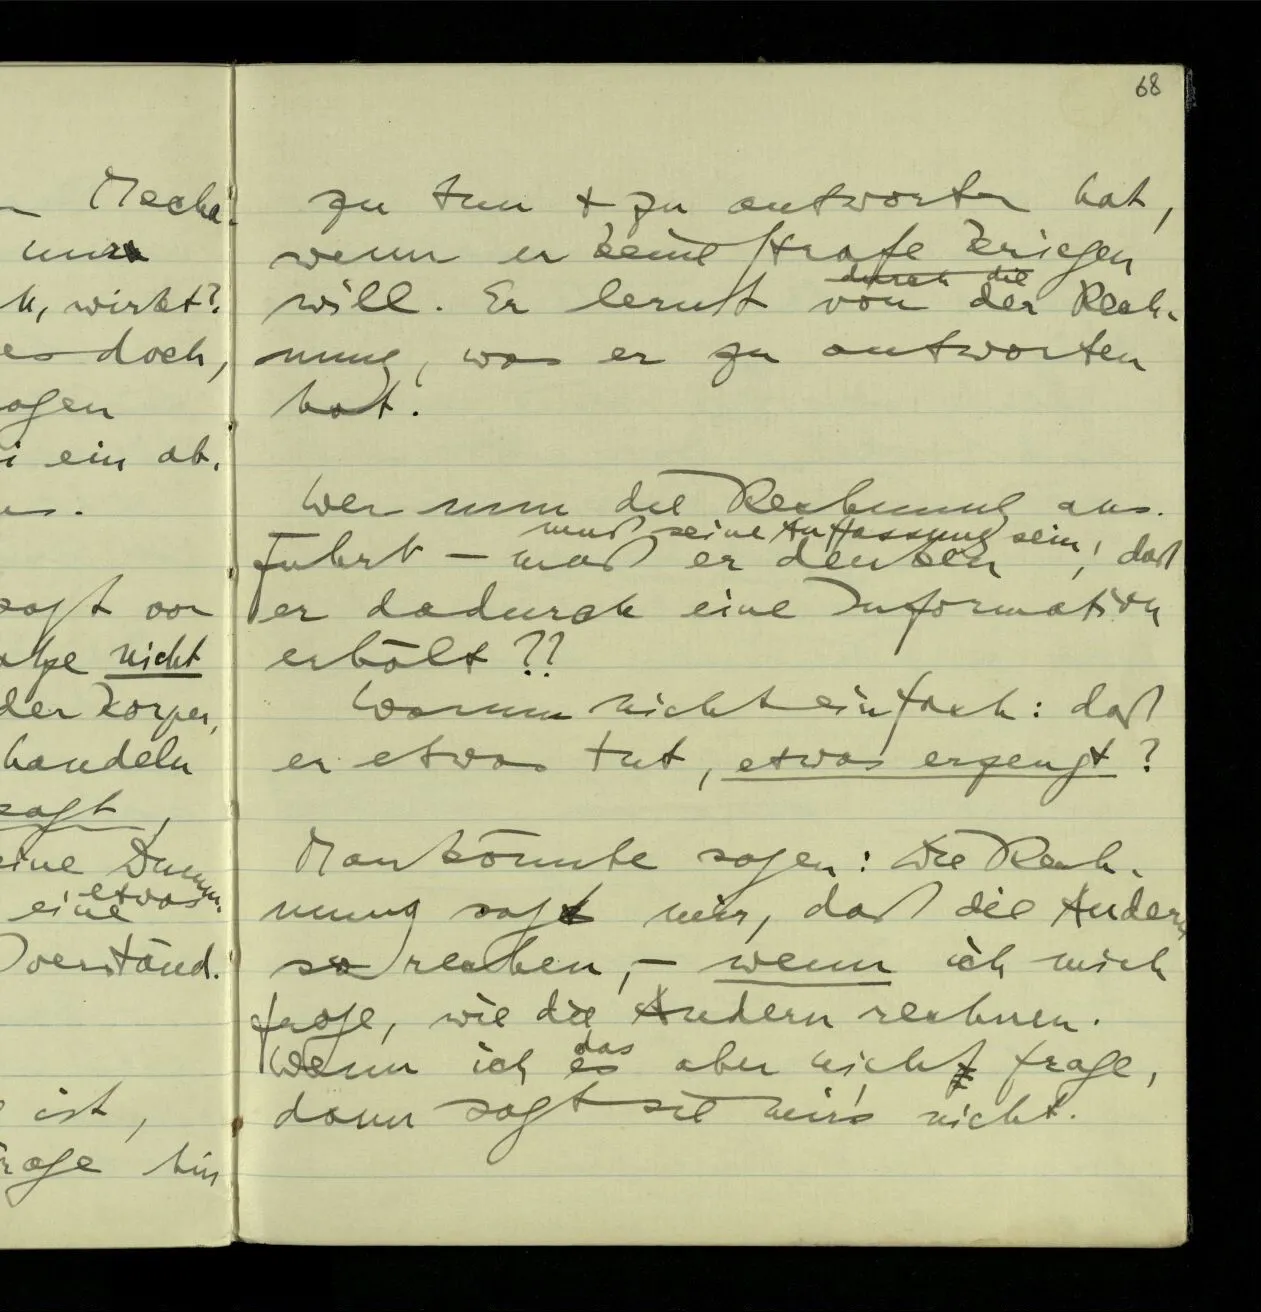 68
Mecha-
zu tun + zu antworten hat,
wenn er keine Strafe kriegen
durch die
will. Er lernt von der Rech-
nung, was er zu antworten
hat.
Wer nun die Rechnung aus-
muß seine Auffassung sein,
führt – muß er denken, daß
er dadurch eine Information
erhält??
Warum nicht einfach: daß
er etwas tut, etwas erzeugt?
Man könnte sagen: Die Rech-
nung sagt mir, daß die Andern
so rechnen, – wenn ich mich
frage, wie die Andern rechnen.
das
Wenn ich es aber nicht frage,
dann sagt sie mir's nicht.
wirkt?
es doch,
ein ab-
sagt
nicht
der Körper,
handeln
sagt,
etwas
eine
verständ-
ist,
hin